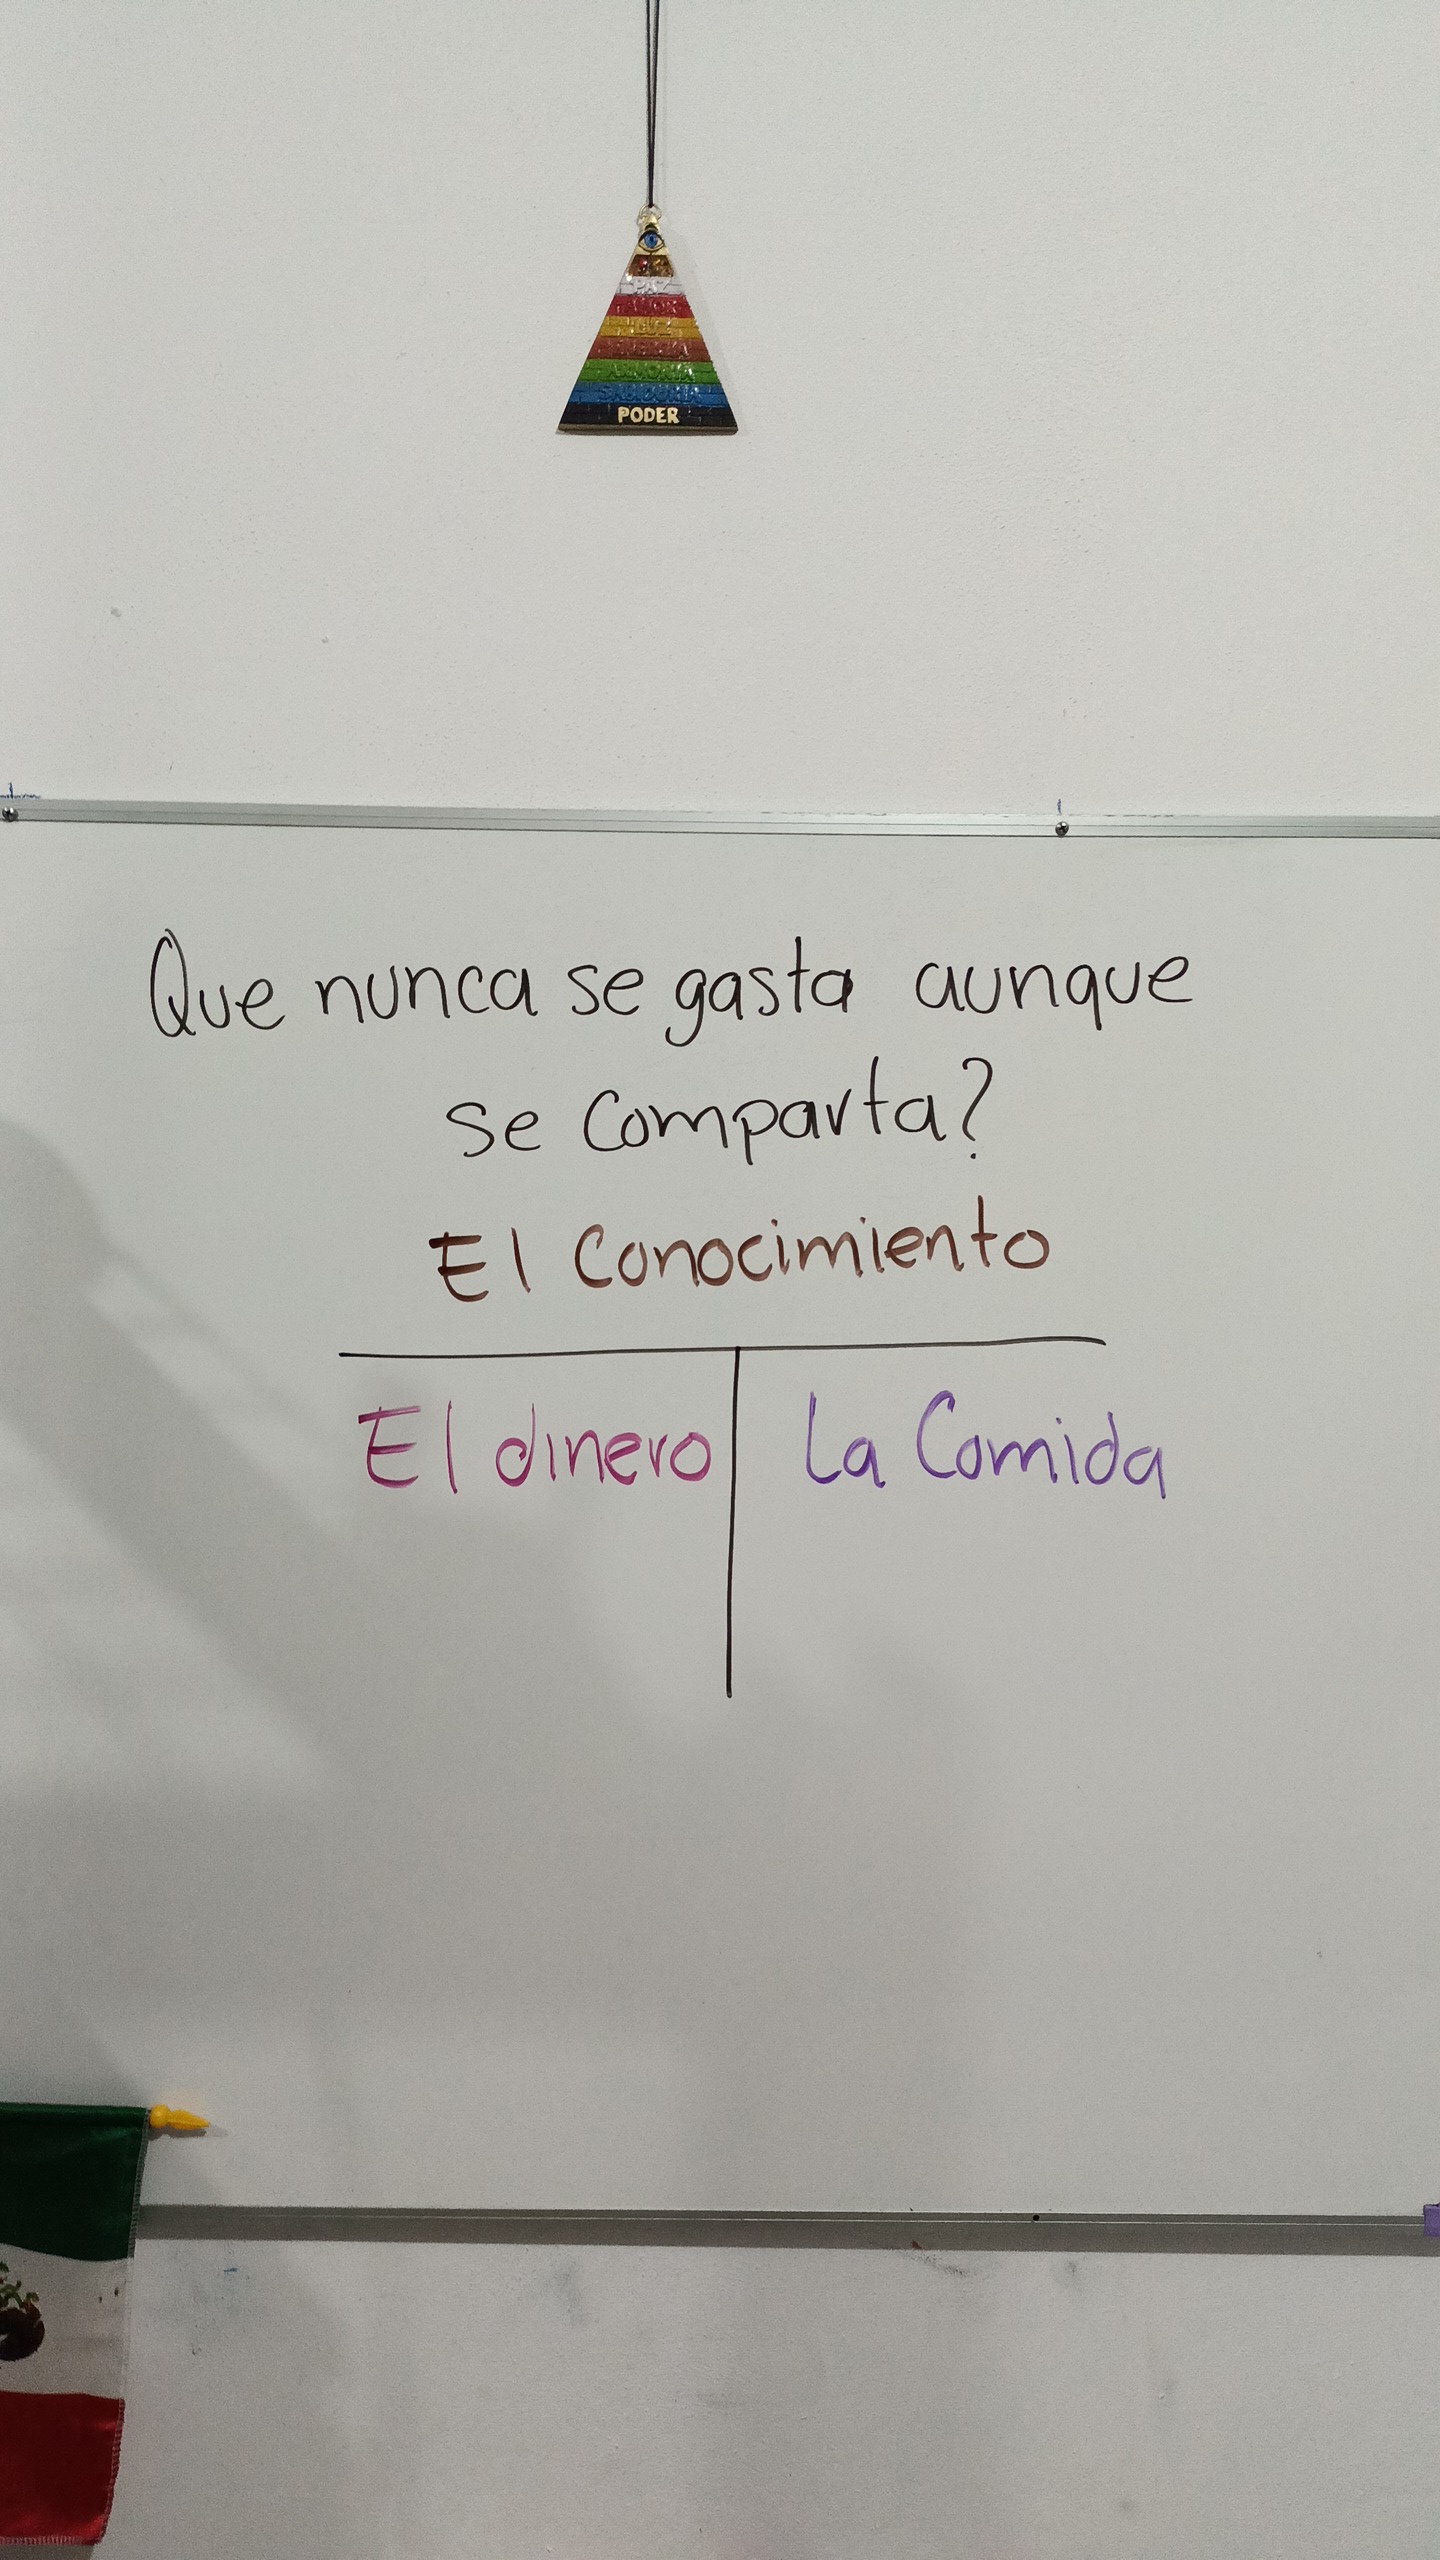 PAZ
AMOR
LUZ
ENERGÍA
ARMONÍA
SABIDURÍA
PODER
Que nunca se gasta aunque
se comparta?
El Conocimiento
El dinero La Comida